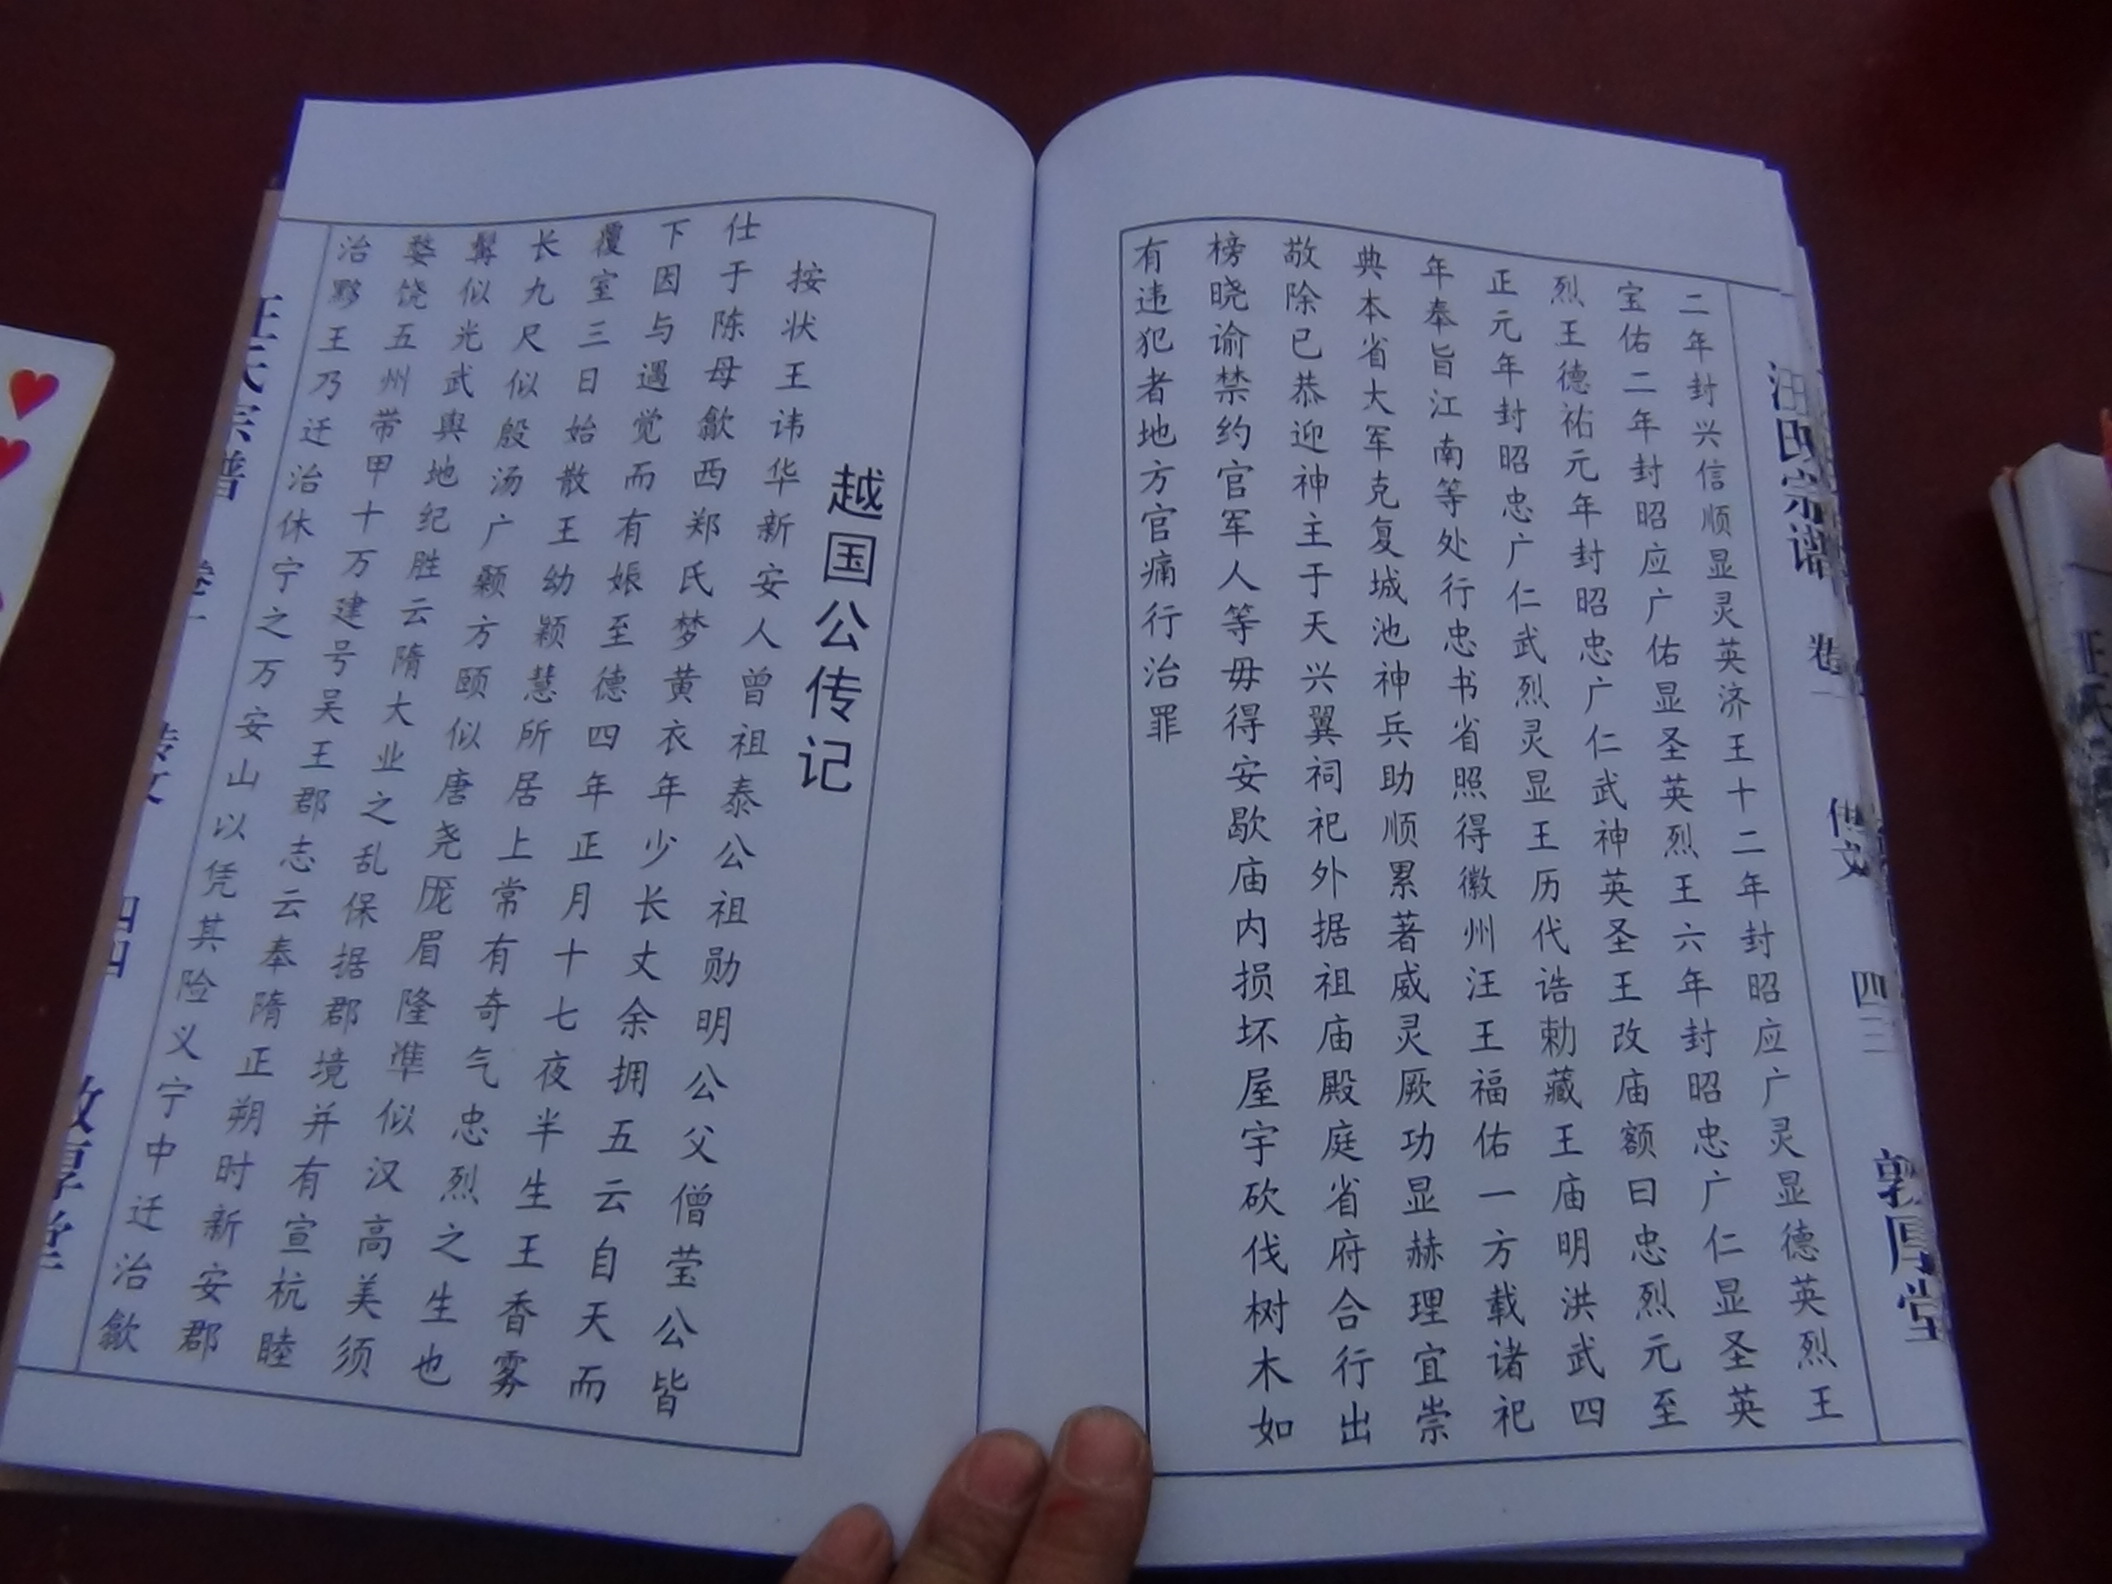 汪氏宗谱 卷一 传文 四三 敦厚堂
二年封兴信顺显灵英济王十二年封昭应广灵显德英烈王
宝佑二年封昭应广佑显圣英烈王六年封昭忠广仁显圣英
烈王德祐元年封昭忠广仁武神英圣王改庙额曰忠烈元至
正元年封昭忠广仁武烈灵显王历代诰勅藏王庙明洪武四
年奉旨江南等处行忠书省照得徽州汪王福佑一方载诸祀
典本省大军克复城池神兵助顺累著威灵厥功显赫理宜崇
敬除已恭迎神主于天兴翼祠祀外据祖庙殿庭省府合行出
榜晓谕禁约官军人等毋得安歇庙内损坏屋宇砍伐树木如
有违犯者地方官痛行治罪
越国公传记
按状王讳华新安人曾祖泰公祖勋明公父僧莹公皆
仕于陈母歙西郑氏梦黄衣年少长丈余拥五云自天而
下因与遇觉而有娠至德四年正月十七夜半生王香雾
覆室三日始散王幼颖慧所居上常有奇气忠烈之生也
长九尺似殷汤广颡方颐似唐尧厖眉隆準似汉高美须
髯似光武舆地纪胜云隋大业之乱保据郡境并有宣杭睦
婺饶五州带甲十万建号吴王郡志云奉隋正朔时新安郡
治黟王乃迁治休宁之万安山以凭其险义宁中迁治歙
汪氏宗谱 卷一 传文 四四 敦厚堂